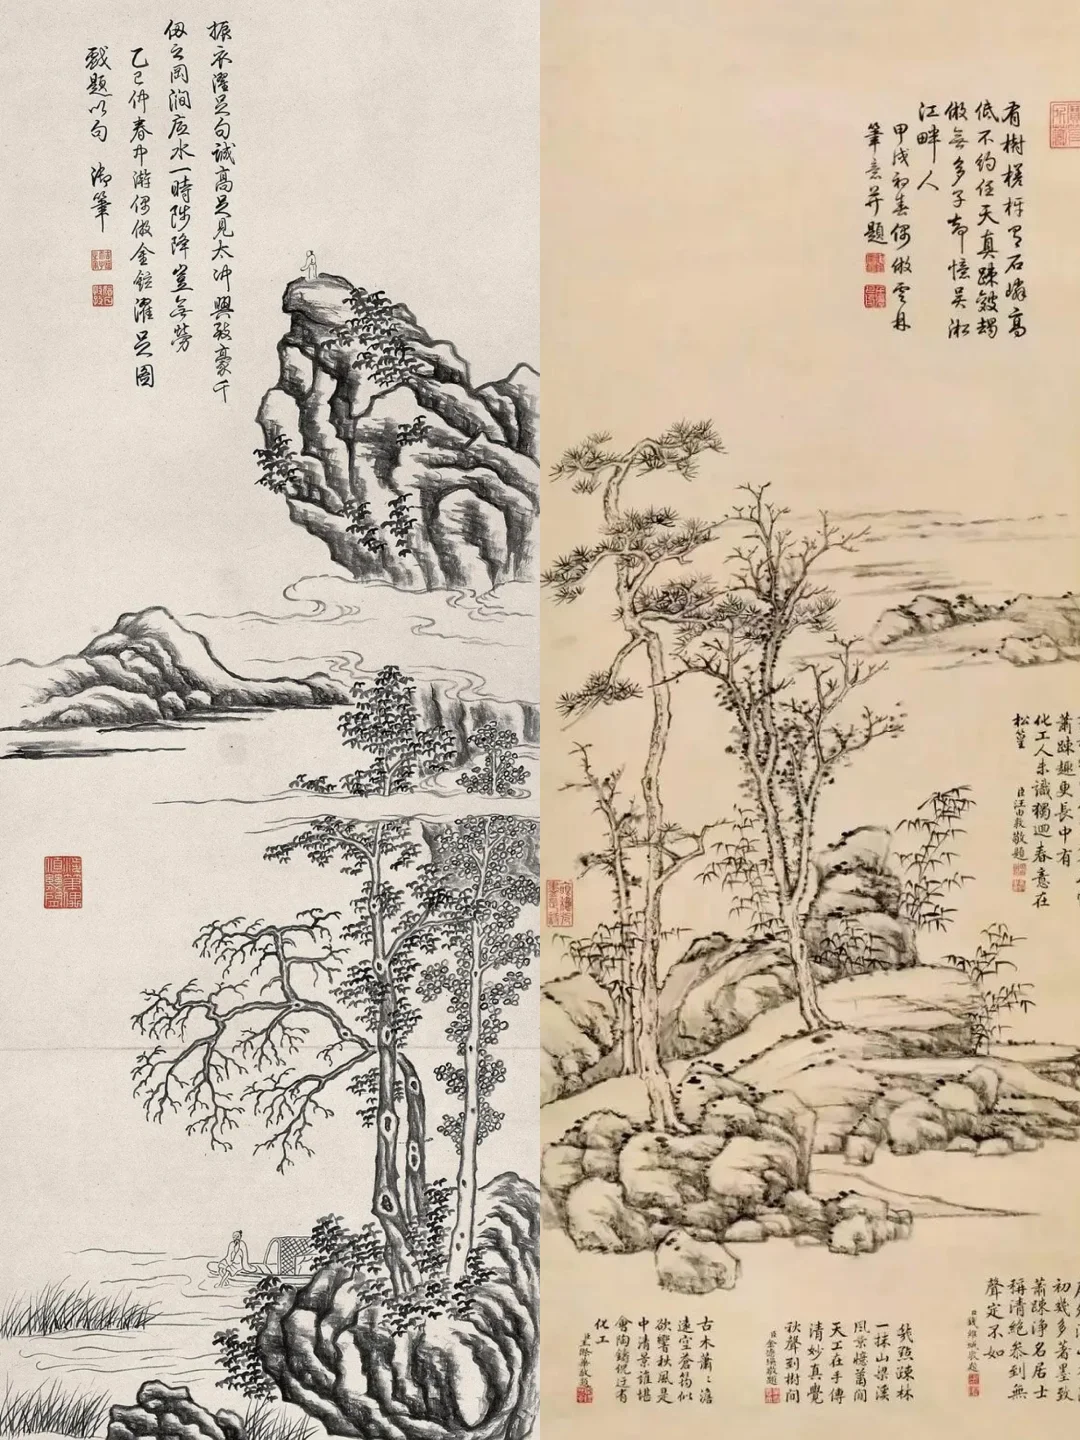 振衣濯足句誠高足見太冲興致豪千
仞之岡澗底水一時陟降豈無勞
乙巳仲春中游偶倣金鉉濯足圖
戲題以句 御筆
有樹槎枒有石嶙高
低不約任天真疎皴蠲
倣無多子却憶吳淞
江畔人
甲戌初春偶倣雲林
筆意并題
蕭疎趣更長中有
化工人未識獨迴春意在
松篁
臣汪由敦敬題
古木蕭蕭澹
遠空蒼筠似
欲響秋風是
中清景誰堪
會陶鑄從還有
化工
幾點疎林
一抹山梁溪
風景憶蕭閒
天工在手傳
清妙真覺
秋聲到樹間
初幾多著墨致
蕭疎淨名居士
稱清絕參到無
聲定不如
臣錢維城敬題